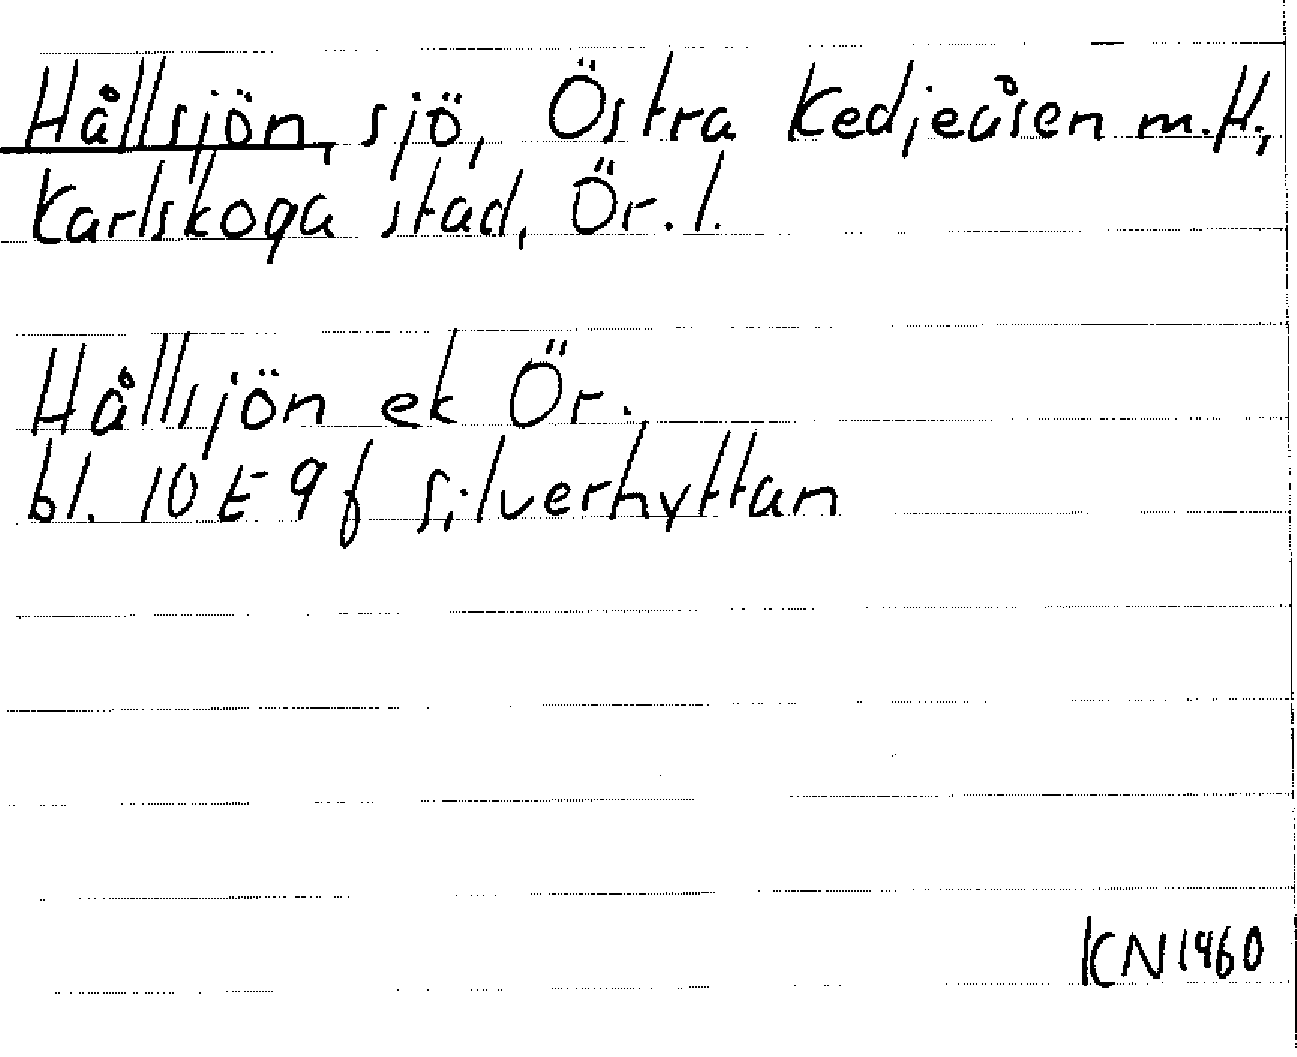 Hållsjön, sjö, Östra Kedjeåsen m.fl.,
Karlskoga stad, Ör. l.
Hållsjön ek Ör.
bl. 10 E 9 f Silverhyttan
KCN 1960